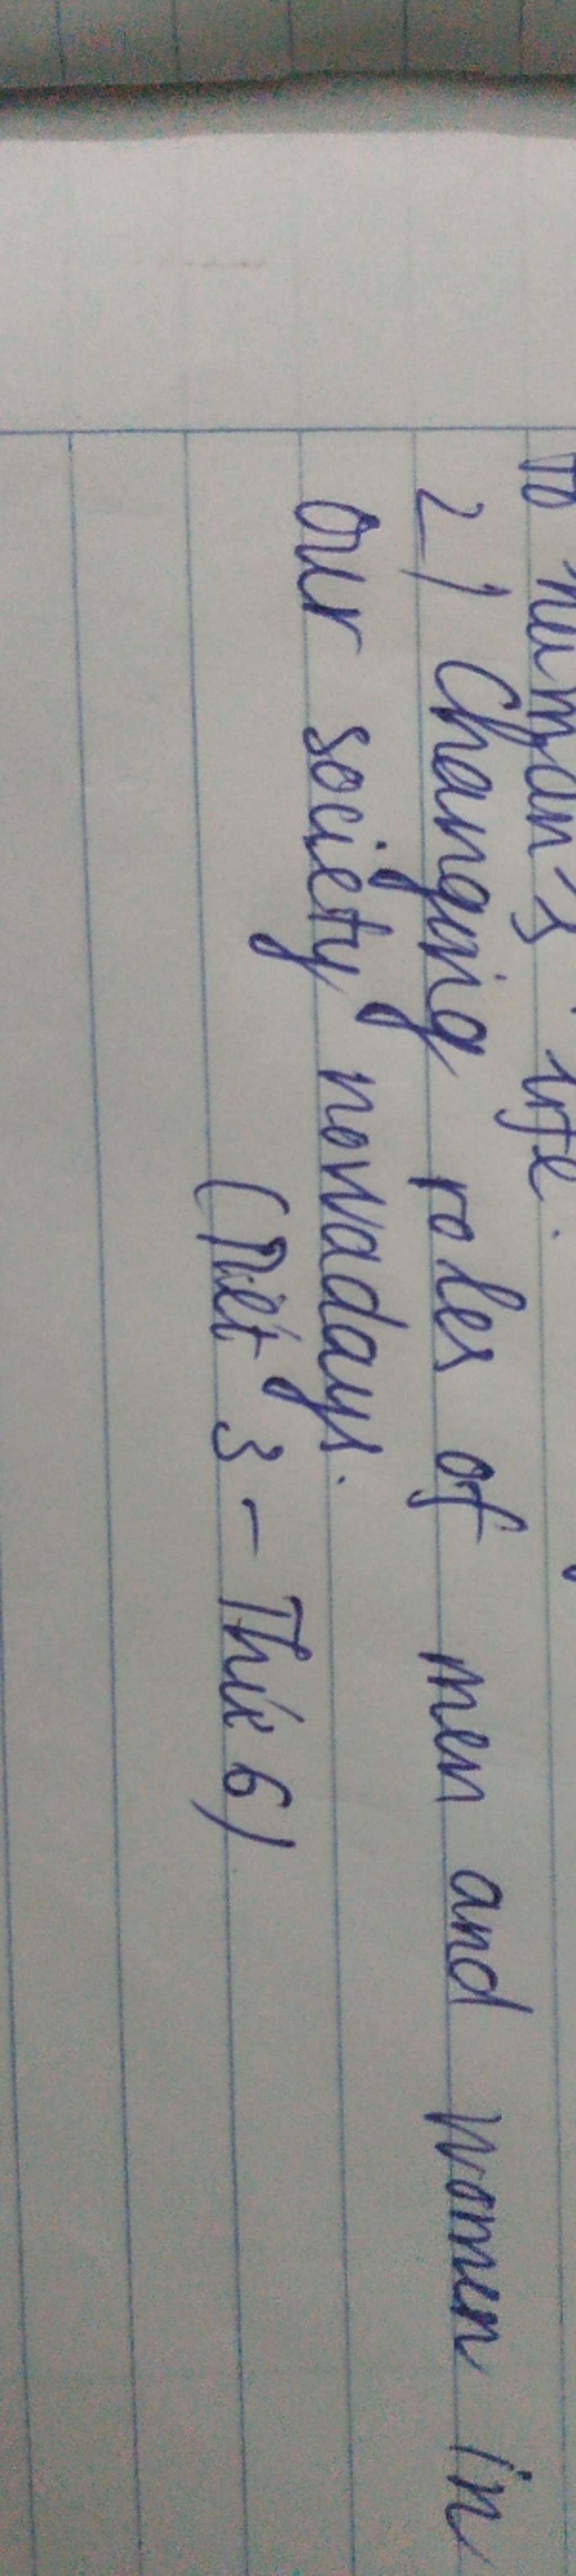 to human's life.
2) Changing roles of men and women in
our society nowadays.
(Tiết 3 - Thứ 6)